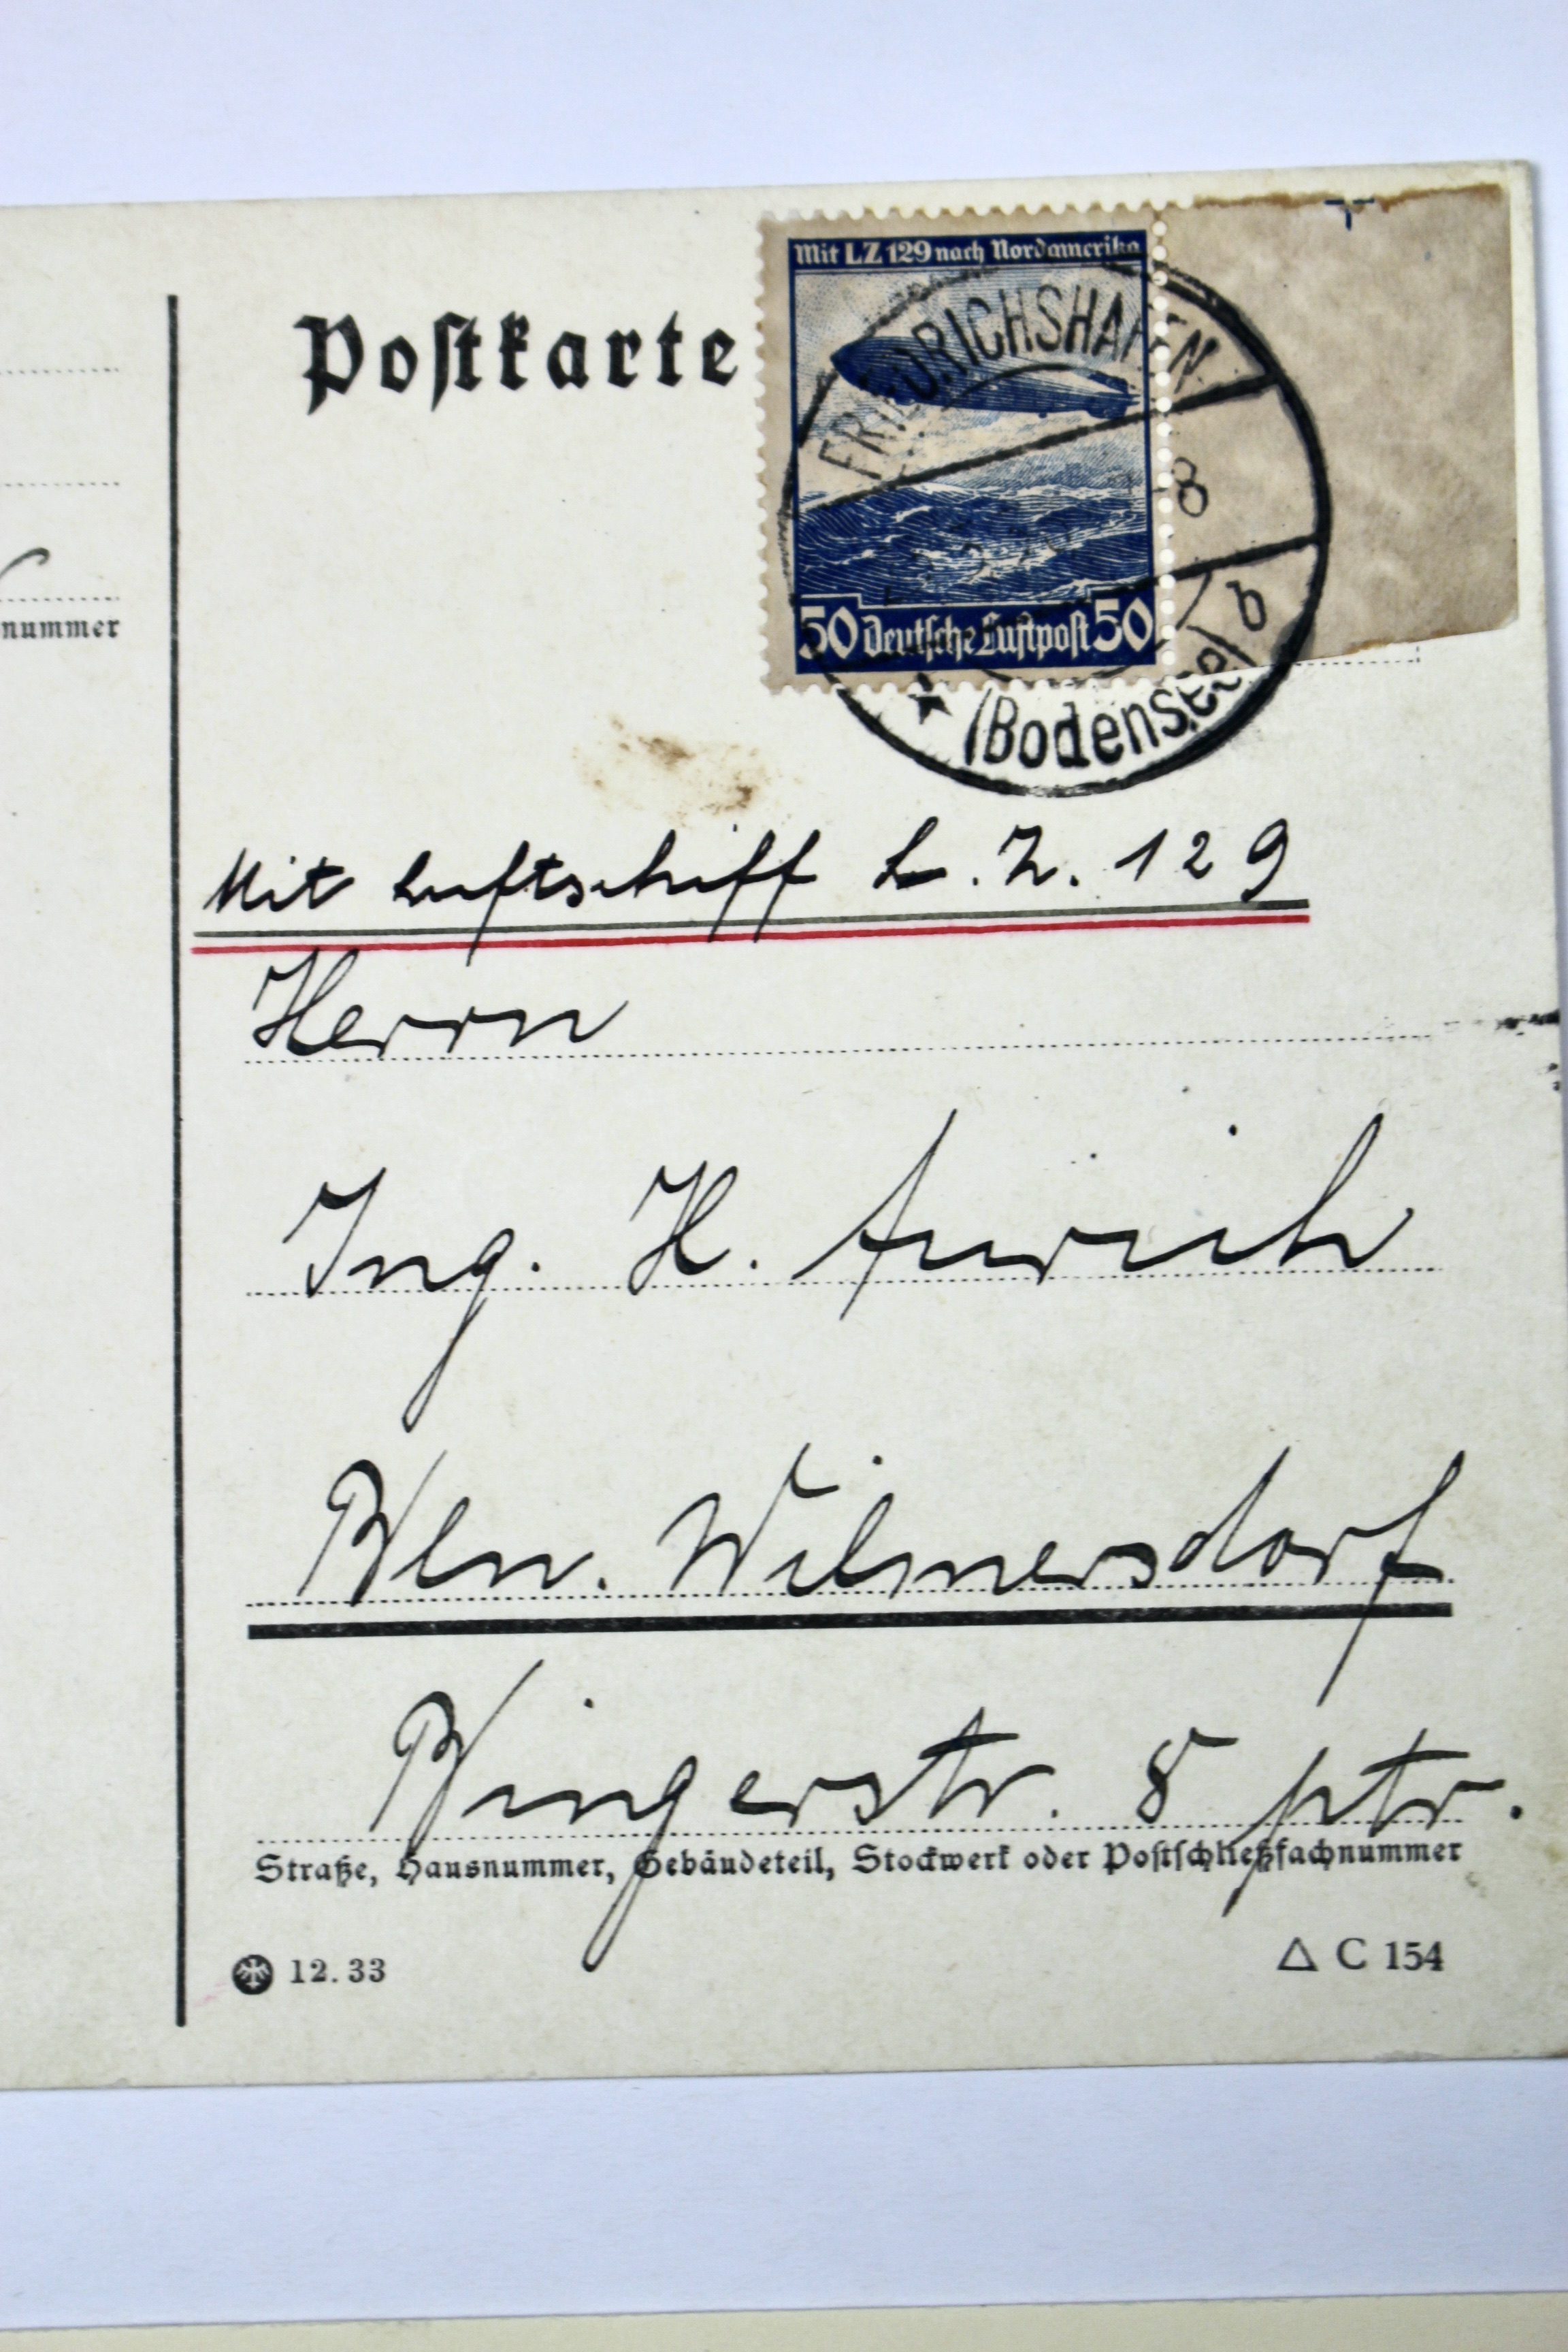 Postkarte
Mit LZ 129 nach Nordamerika
50 Deutsche Luftpost 50
FRIEDRICHSHAFEN
8
b
(Bodensee)
nummer
Mit Luftschiff L. Z. 129
Herrn
Ing. H. Aurich
Bln. Wilmersdorf
Bingerstr. 8 ptr.
Straße, Hausnummer, Gebäudeteil, Stockwerk oder Postschließfachnummer
12.33
△ C 154